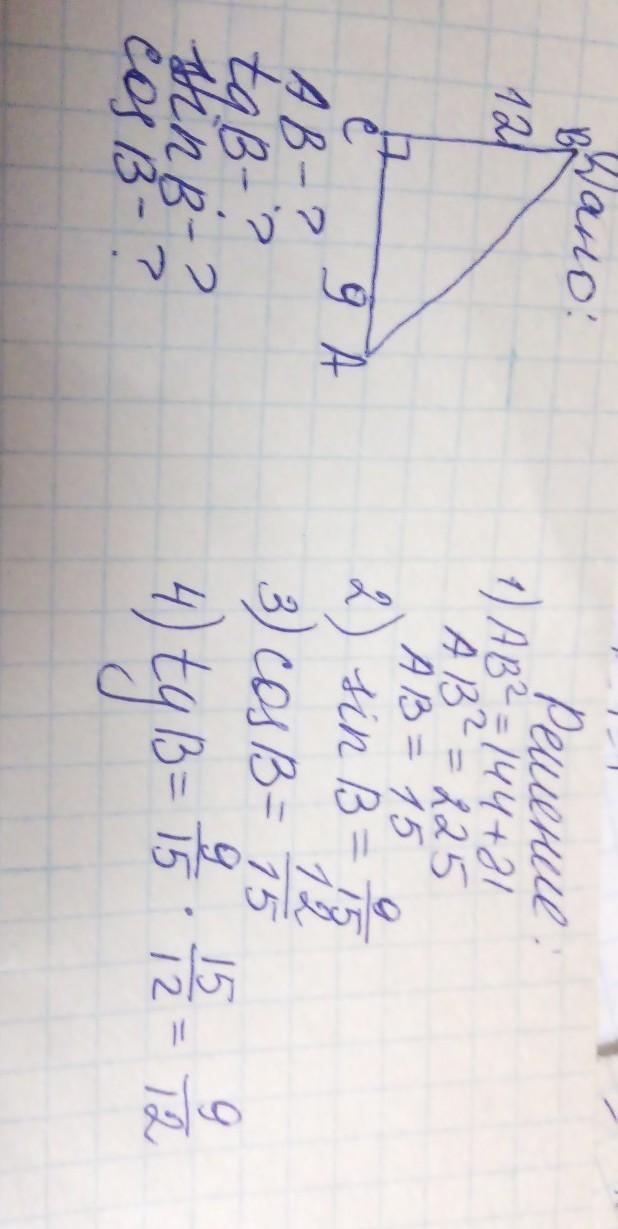 Дано:
B
12
C
9
A
AB - ?
tg B - ?
sin B - ?
cos B - ?
Решение:
1) AB² = 144 + 81
AB² = 225
AB = 15
2) sin B = 9/15
3) cos B = 12/15
4) tg B = 9/15 · 15/12 = 9/12